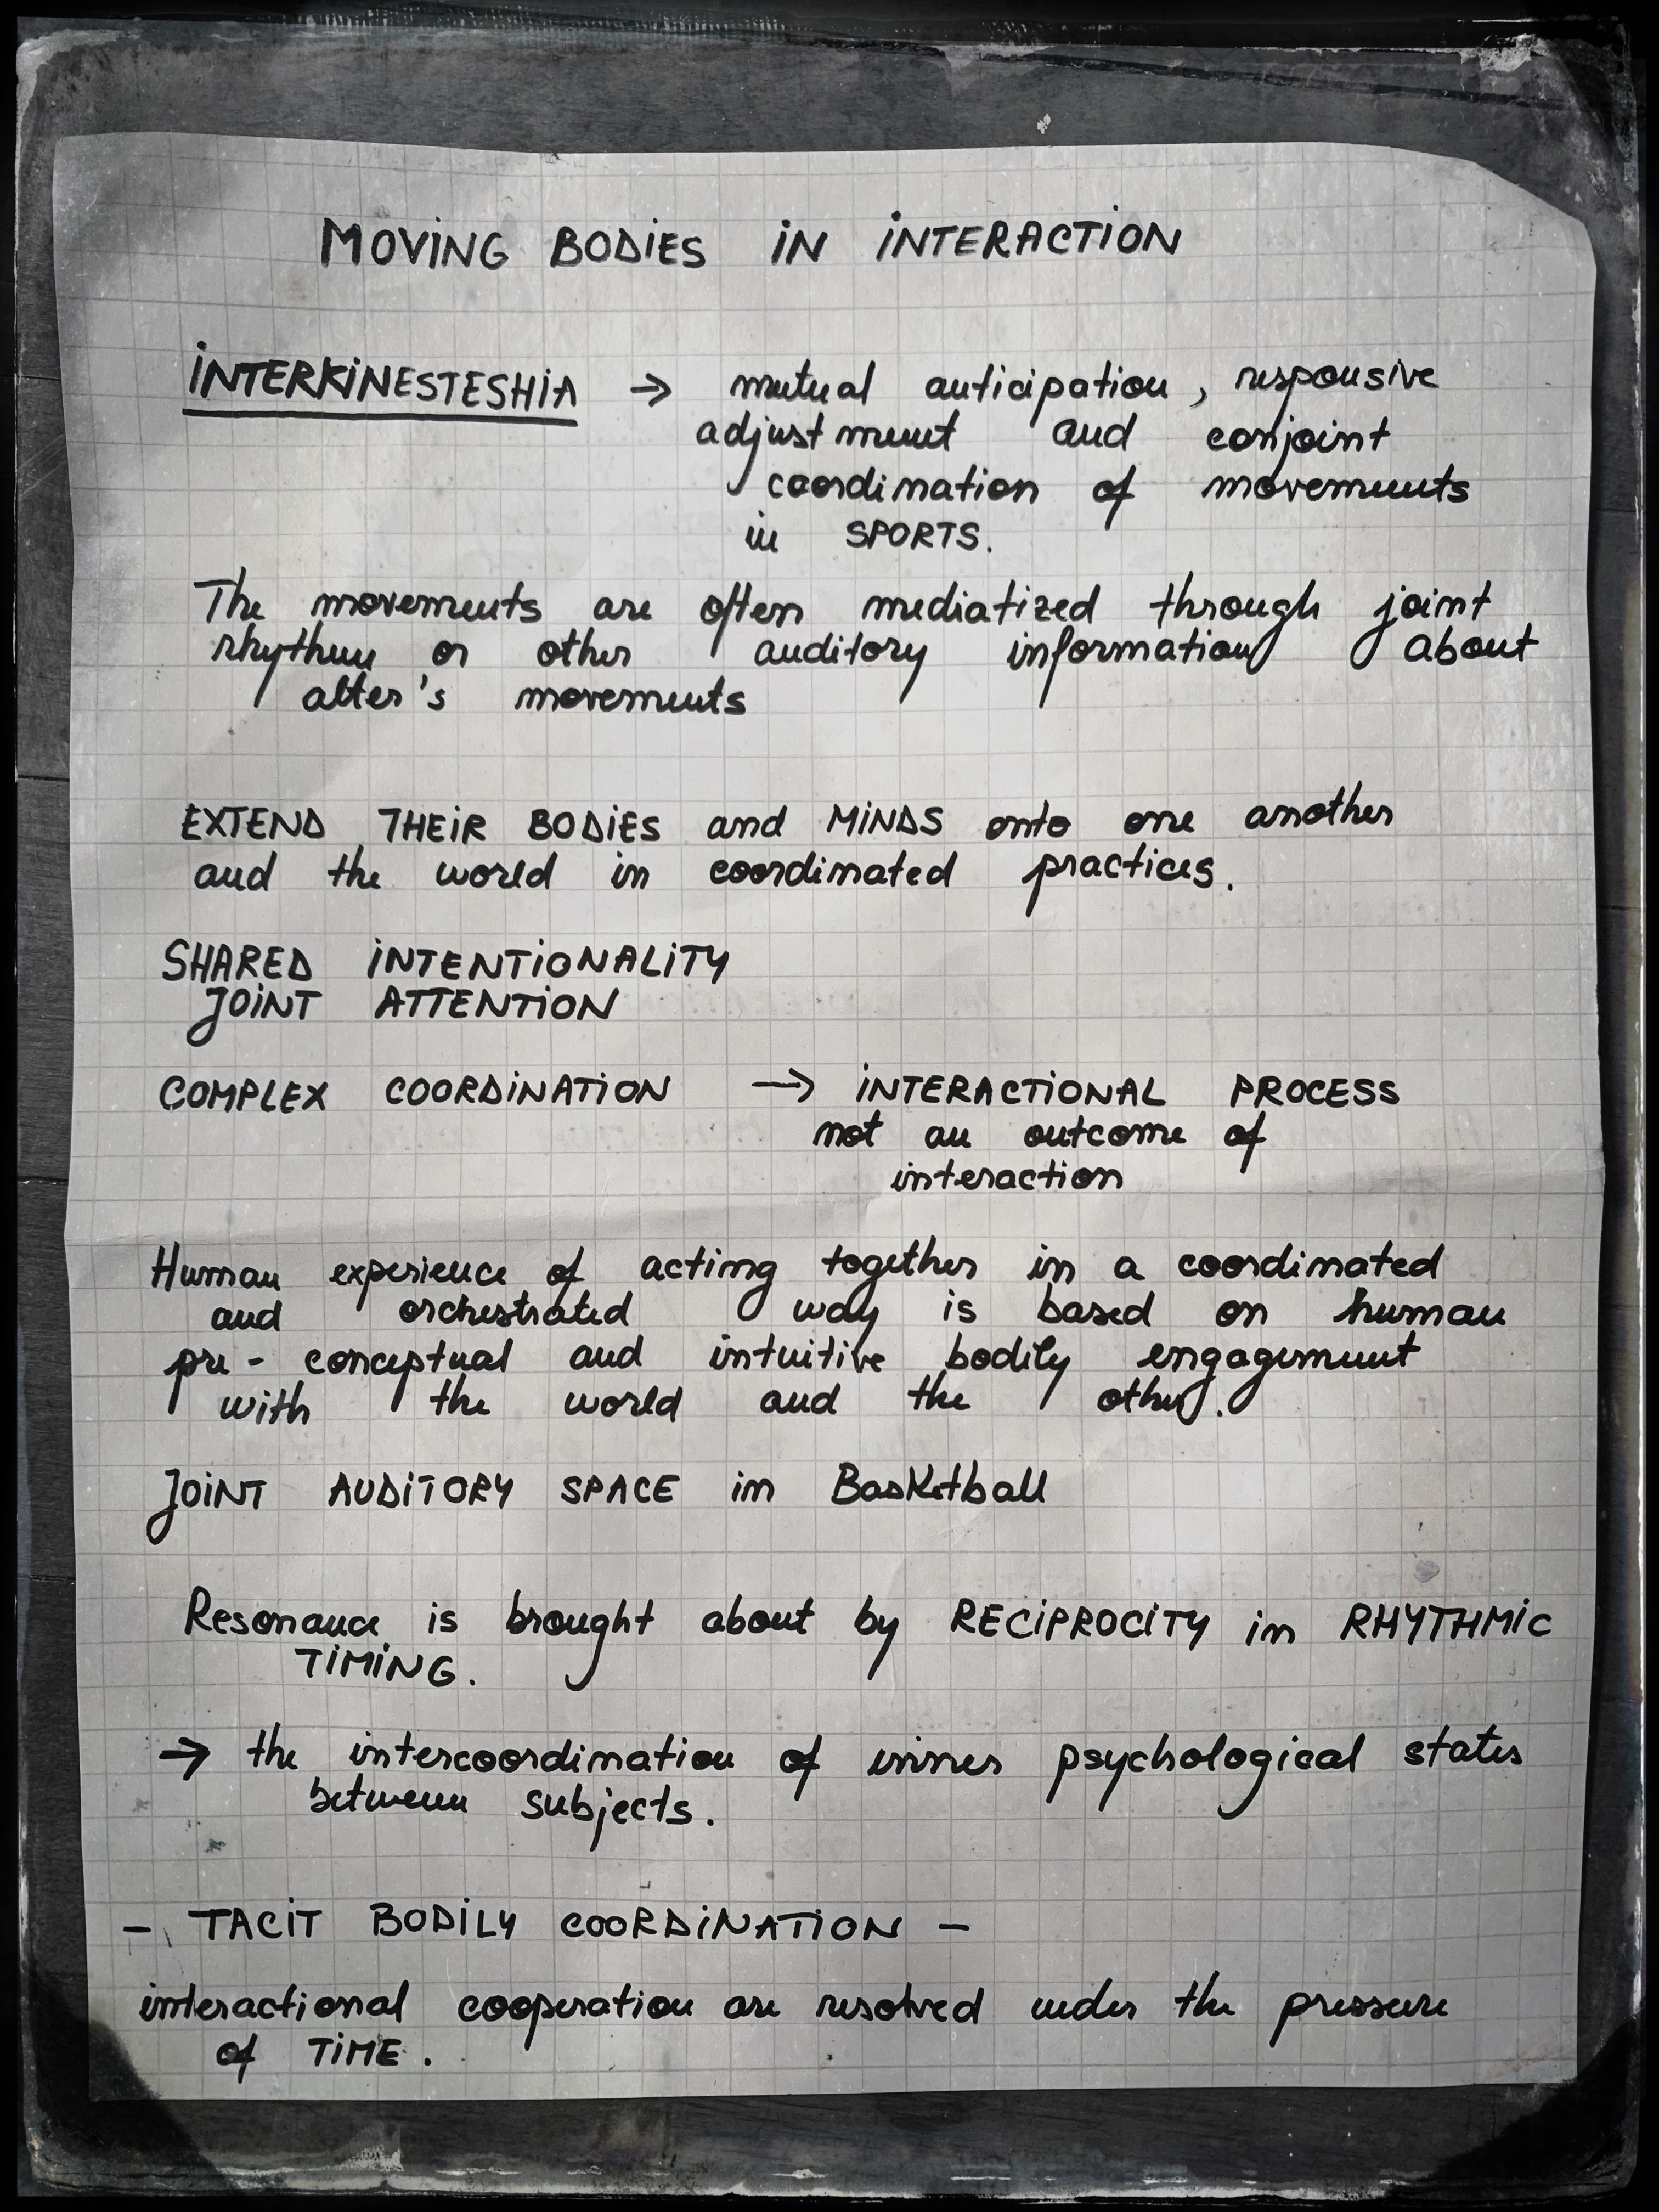 MOVING BODIES IN INTERACTION
INTERKINESTESHIA → mutual anticipation, responsive
adjustment and conjoint
coordination of movements
in SPORTS.
The movements are often mediatized through joint
rhythm or other auditory information about
alter's movements
EXTEND THEIR BODIES and MINDS onto one another
and the world in coordinated practices.
SHARED INTENTIONALITY
JOINT ATTENTION
COMPLEX COORDINATION → INTERACTIONAL PROCESS
not an outcome of
interaction
Human experience of acting together in a coordinated
and orchestrated way is based on human
pre-conceptual and intuitive bodily engagement
with the world and the other.
JOINT AUDITORY SPACE in Basketball
Resonance is brought about by RECIPROCITY in RHYTHMIC
TIMING.
→ the intercoordination of inner psychological states
between subjects.
- TACIT BODILY COORDINATION -
interactional cooperation are resolved under the pressure
of TIME.